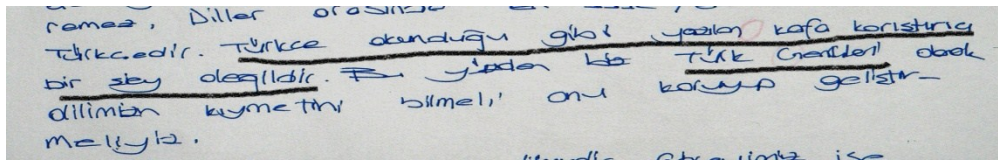 ramaz, Diller arasında
Türkcedir. Türkce okunduğu gibi yazılan kafa karıştırıcı
bir şey değildir. yüzden biz Türk Gençleri olarak
dilimizin kıymetini bilmeli, onu koruyup geliştir-
meliyiz.
ise